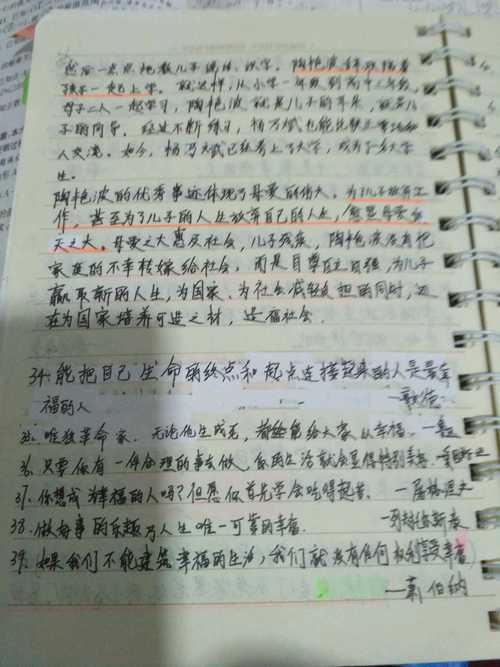 然后一点点地教儿子说话、识字。陶艳波陪着
孩子一起上学。就这样,从小学一年级到高中三年级,
母子二人一起学习,陶艳波就是儿子的耳朵,就是儿
子的同学。经过不断练习,杨乃斌也能比较正常地和
人交流。如今,杨乃斌已经考上了大学,成为了一名大学
生。
陶艳波的优秀事迹体现了母爱的伟大。为儿子放弃工
作,甚至为了儿子的人生放弃自己的人生,愈显母爱
天之大。母爱之大惠及社会,儿子残疾,陶艳波没有把
家庭的不幸转嫁给社会,而是自尊自立自强,为儿子
赢取新的人生,为国家、为社会减轻负担的同时,还
在为国家培养可造之材,造福社会.
34.能把自己生命的终点和起点连接起来的人是最幸
福的人 —歌德
35.唯独革命家,无论他生或死,都能给大家以幸福.—鲁迅
36.只要你有一件合理的事去做,你的生活就会显得特别美好.
37.你想成为幸福的人吗?但愿你首先学会吃得起苦.—屠格涅夫
38.做好事的乐趣乃人生唯一可靠的幸福. —列夫托尔斯泰
39.如果我们不能建筑幸福的生活,我们就没有任何权利享受幸福
—萧伯纳